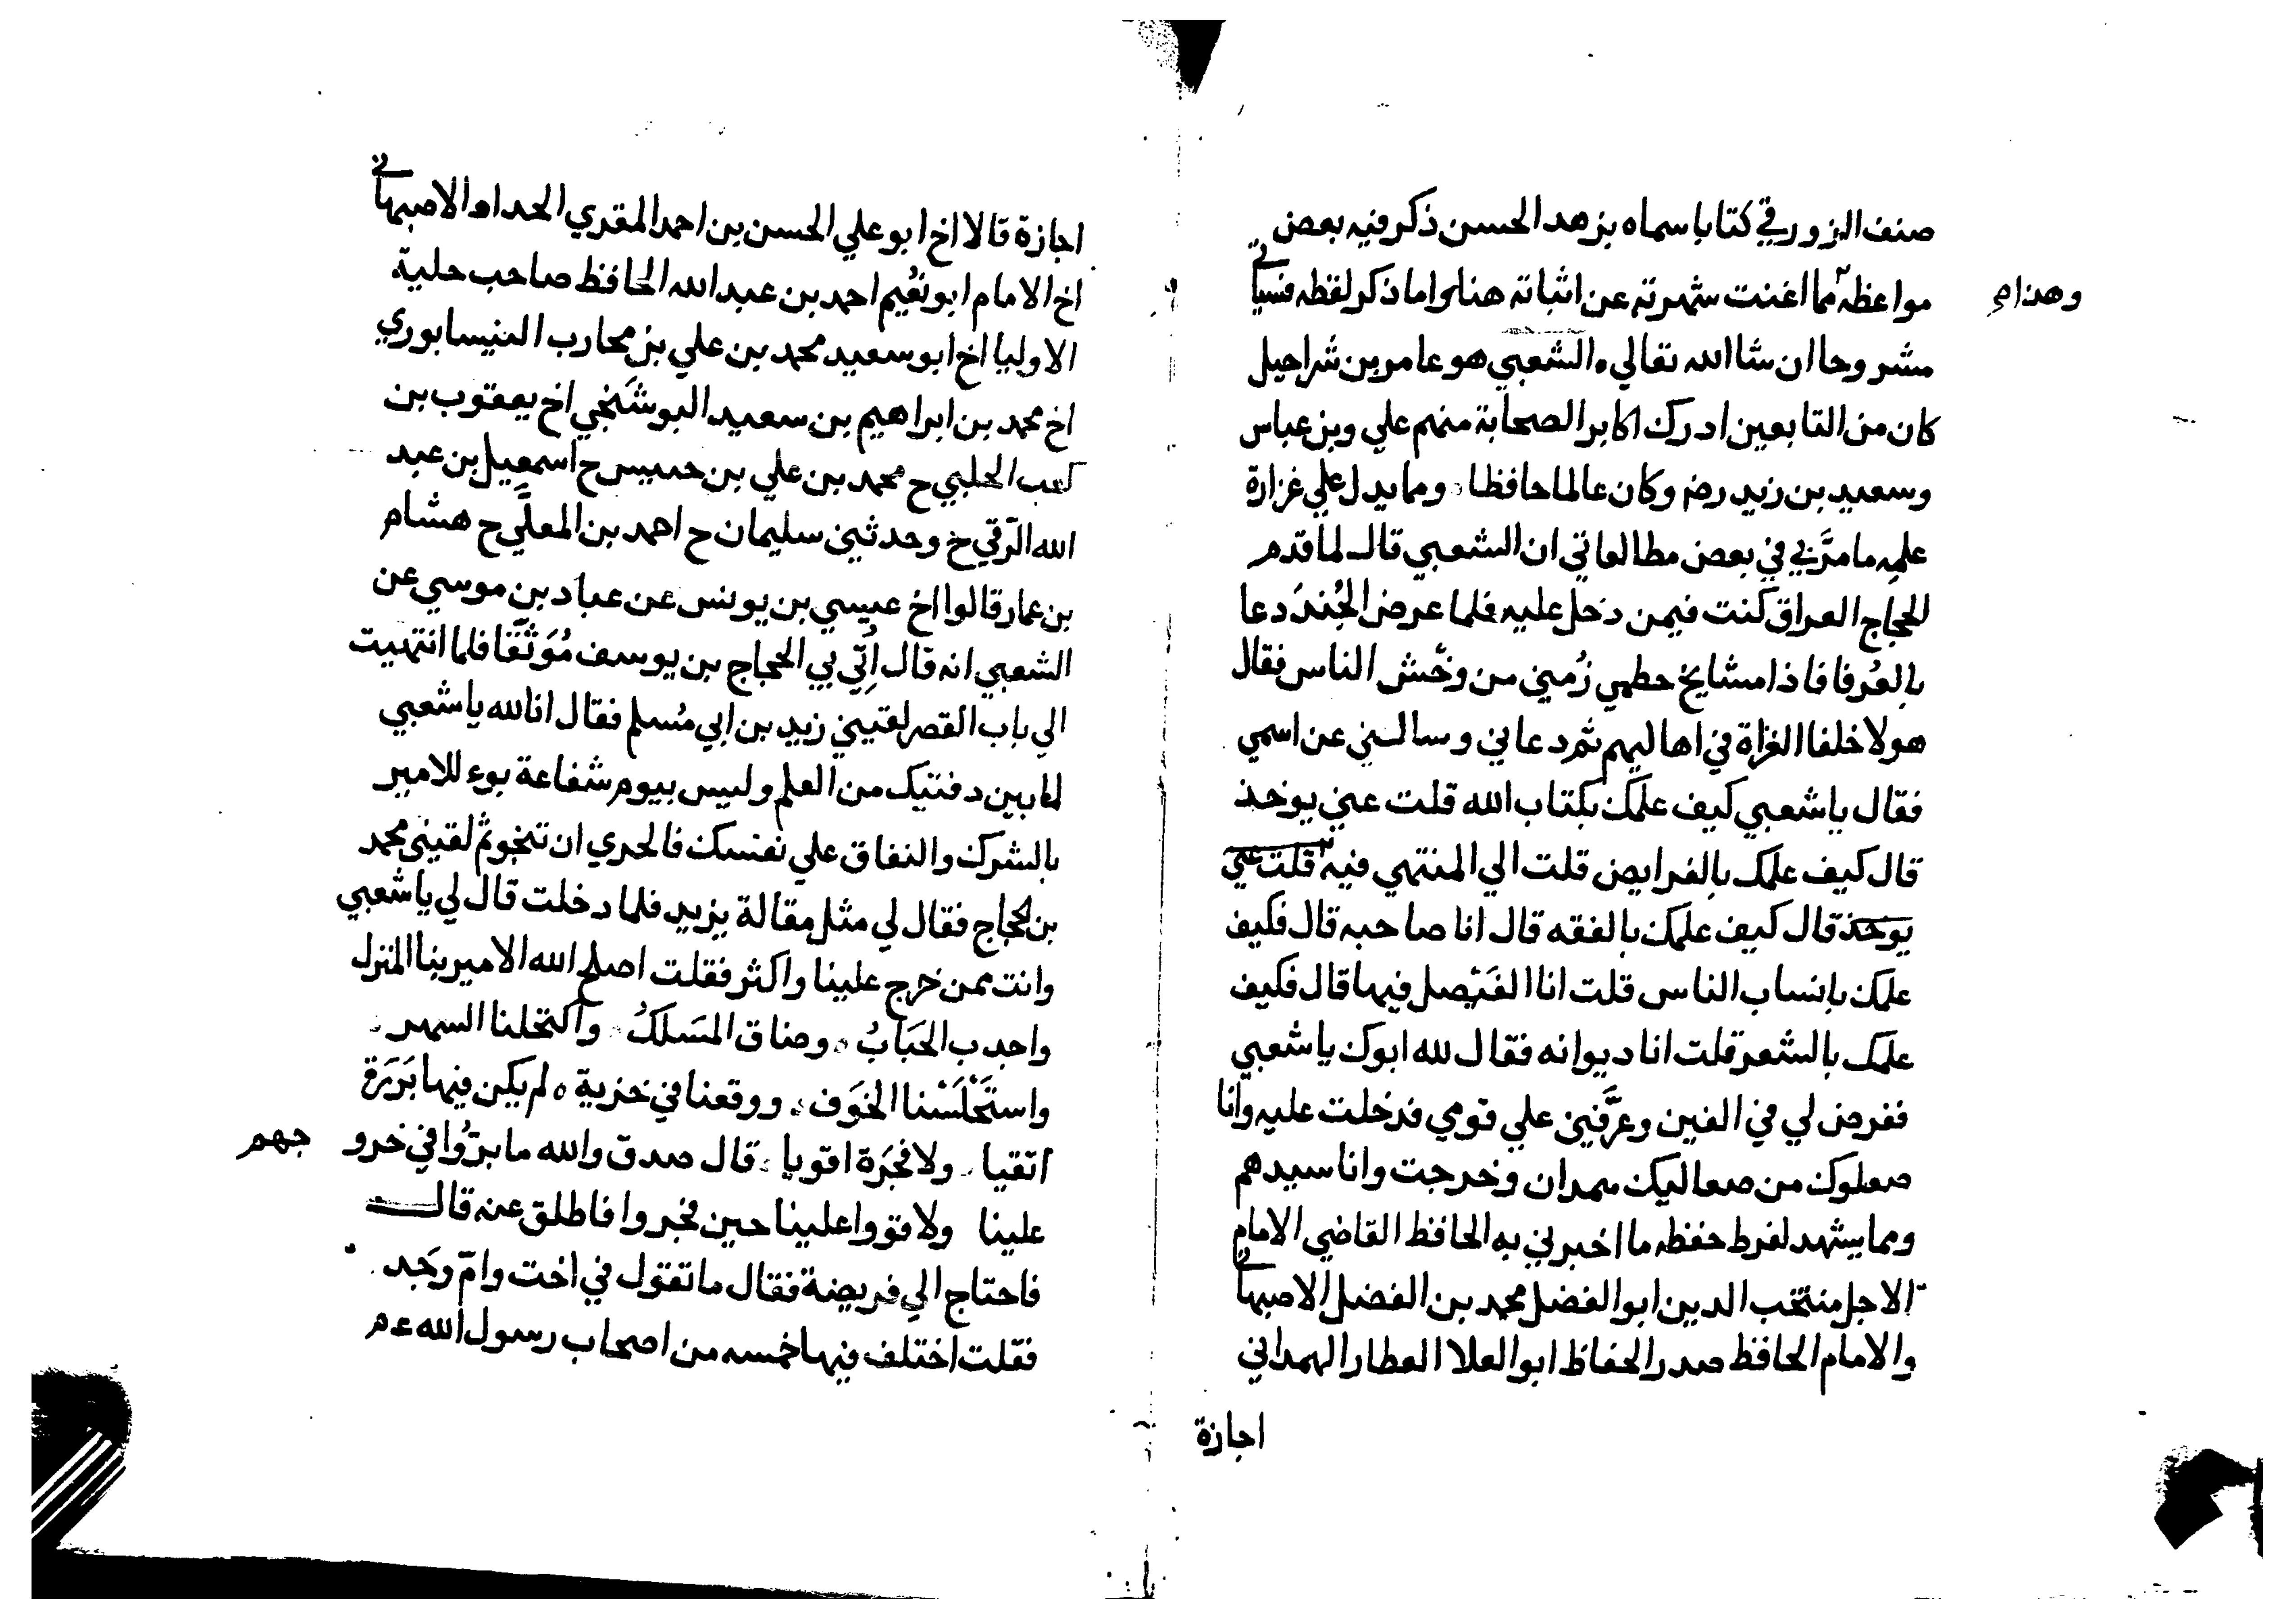 صنف الزورقي كتابا سماه بزهد الحسن ذكر فيه بعض
مواعظه مما اغنت شهرته عن اثباته هنا واما ذكر لفظه فسياتي
وهذا م
مشروحا ان شا الله تعالي ه الشعبي هو عامر بن شراحيل
كان من التابعين ادرك اكابر الصحابة منهم علي وبن عباس
وسعيد بن زيد رضم وكان عالما حافظا ومما يدل علي غزارة
علمه ما مرَّ بي في بعض مطالعاتي ان الشعبي قال لما قدم
الحجاج العراق كنت فيمن دخل عليه فلما عرض الجُندَ دعا
بالعُرفا فاذا مشايخ حطمي زُمني من وخْش الناس فقال
هولا خلفا الغزاة في اهاليهم ثم دعاني وسالني عن اسمي
فقال يا شعبي كيف علمك بكتاب الله قلت عني يوخذ
قال كيف علمك بالفرايض قلت الي المنتهي فيه قلت عني
يوخذ قال كيف علمك بالفقه قال انا صاحبه قال فكيف
علمك بانساب الناس قلت انا الفَيْصل فيها قال فكيف
علمك بالشعر قلت انا ديوانه فقال لله ابوك يا شعبي
ففرض لي في الفين وعرَّفني علي قومي فدخلت عليه وانا
صعلوك من صعاليك همدان وخرجت وانا سيدهم
ومما يشهد لفرط حفظه ما اخبرني به الحافظ القاضي الامام
الاجل منتخب الدين ابو الفضل محمد بن الفضل الاصبهاني
والامام الحافظ صدر الحفاظ ابو العلا العطار الهمداني
اجازة
اجازة قالا اخ ابو علي الحسن بن احمد المقري الحداد الاصبهاني
اخ الامام ابو نعُيم احمد بن عبد الله الحافظ صاحب حلية
الاوليا اخ ابو سعيد محمد بن علي بن محارب النيسابوري
اخ محمد بن ابراهيم بن سعيد البوشَنجي اخ يعقوب بن
كعب الحلبي ح محمد بن علي بن حبيس ح اسمعيل بن عبد
الله الرّقي خ وحدثني سليمان ح احمد بن المعلَّي ح هشام
بن عمار قالوا اخ عيسي بن يونس عن عباد بن موسي عن
الشعبي انه قال اُتِي بي الحجاج بن يوسف مُوَثَّقا فلما انتهيت
الي باب القصر لقيني زيد بن ابي مُسلم فقال انا لله يا شعبي
لما بين دفتيك من العلم وليس بيوم شفاعة بوء للامير
بالشرك والنفاق علي نفسك فالحري ان تنجو ثم لقيني محمد
بن الحجاج فقال لي مثل مقالة يزيد فلما دخلت قال لي يا شعبي
وانت ممن خرج علينا واكثر فقلت اصلح الله الامير بنا المنزل
واجدب الجَنَابُ وضاق المَسَلكُ واكتحلنا السهر
واستَحْلَسْنا الخَوَف ووقعنا في خزية ه لم يكن فيها بَرَرَة
اتقيا ولا فَجَرَة اقويا قال صدق والله ما برُّوا في خرو جهم
علينا ولا قووا علينا حين فجروا فاطلق عنه قال
فاحتاج الي فريضة فقال ما تقول في اخت وامّ وَجد
فقلت اختلف فيها خمسه من اصحاب رسول الله ءم